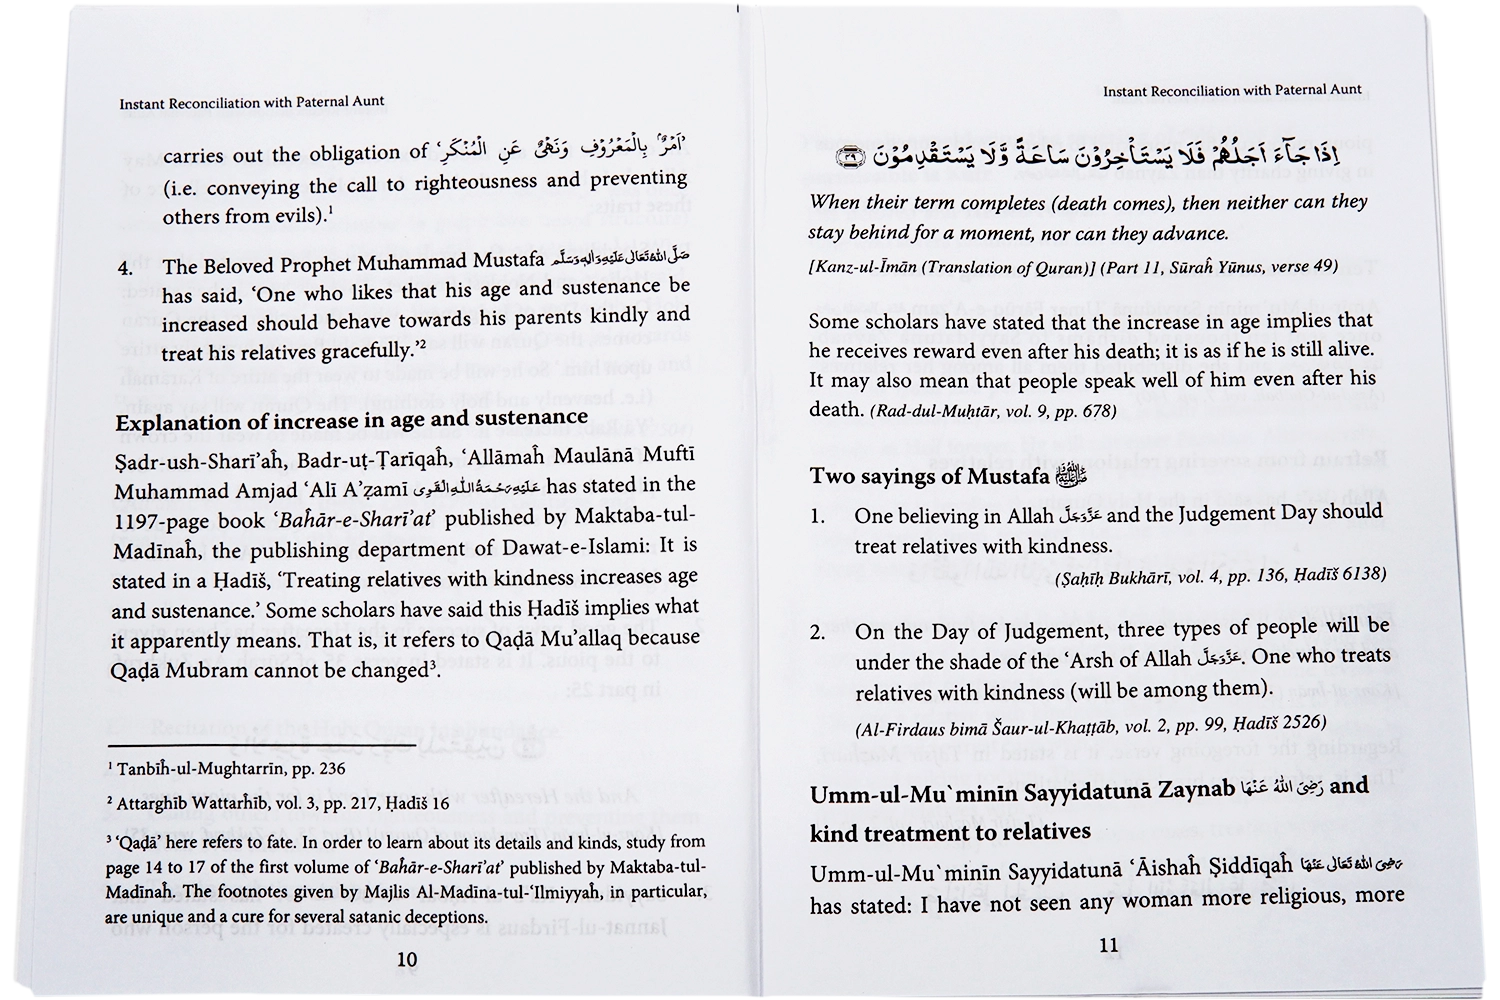 Instant Reconciliation with Paternal Aunt
carries out the obligation of ‘اَمْرٌۢ بِالْمَعْرُوْفِ وَنَهْیٌ عَنِ الْمُنْكَرِ’
(i.e. conveying the call to righteousness and preventing
others from evils).¹
4. The Beloved Prophet Muhammad Mustafa صَلَّى اللهُ تَعَالٰى عَلَيْهِ وَاٰلِهٖ وَسَلَّم
has said, ‘One who likes that his age and sustenance be
increased should behave towards his parents kindly and
treat his relatives gracefully.’²
Explanation of increase in age and sustenance
Ṣadr-ush-Sharī’aĥ, Badr-uṭ-Ṭarīqaĥ, ‘Allāmaĥ Maulānā Muftī
Muhammad Amjad ‘Alī A’ẓamī عَلَيْهِ رَحْمَةُ اللهِ الْقَوِى has stated in the
1197-page book ‘Baĥār-e-Sharī’at’ published by Maktaba-tul-
Madīnaĥ, the publishing department of Dawat-e-Islami: It is
stated in a Ḥadīš, ‘Treating relatives with kindness increases age
and sustenance.’ Some scholars have said this Ḥadīš implies what
it apparently means. That is, it refers to Qaḍā Mu’allaq because
Qaḍā Mubram cannot be changed³.
¹ Tanbīĥ-ul-Mughtarrīn, pp. 236
² Attarghīb Wattarhīb, vol. 3, pp. 217, Ḥadīš 16
³ ‘Qaḍā’ here refers to fate. In order to learn about its details and kinds, study from
page 14 to 17 of the first volume of ‘Baĥār-e-Sharī’at’ published by Maktaba-tul-
Madīnaĥ. The footnotes given by Majlis Al-Madīna-tul-‘Ilmiyyaĥ, in particular,
are unique and a cure for several satanic deceptions.
10
Instant Reconciliation with Paternal Aunt
اِذَا جَآءَ اَجَلُهُمْ فَلَا يَسْتَاْخِرُوْنَ سَاعَةً وَّلَا يَسْتَقْدِمُوْنَ ﴿۴۹﴾
When their term completes (death comes), then neither can they
stay behind for a moment, nor can they advance.
[Kanz-ul-Īmān (Translation of Quran)] (Part 11, Sūraĥ Yūnus, verse 49)
Some scholars have stated that the increase in age implies that
he receives reward even after his death; it is as if he is still alive.
It may also mean that people speak well of him even after his
death. (Rad-dul-Muḥtār, vol. 9, pp. 678)
Two sayings of Mustafa ﷺ
1. One believing in Allah عَزَّوَجَلَّ and the Judgement Day should
treat relatives with kindness.
(Ṣaḥīḥ Bukhārī, vol. 4, pp. 136, Ḥadīš 6138)
2. On the Day of Judgement, three types of people will be
under the shade of the ‘Arsh of Allah عَزَّوَجَلَّ. One who treats
relatives with kindness (will be among them).
(Al-Firdaus bimā Šaur-ul-Khaṭṭāb, vol. 2, pp. 99, Ḥadīš 2526)
Umm-ul-Mu`minīn Sayyidatunā Zaynab رَضِىَ اللهُ عَنْهَا and
kind treatment to relatives
Umm-ul-Mu`minīn Sayyidatunā ‘Āishaĥ Ṣiddīqaĥ رَضِىَ اللهُ تَعَالٰى عَنْهَا
has stated: I have not seen any woman more religious, more
11